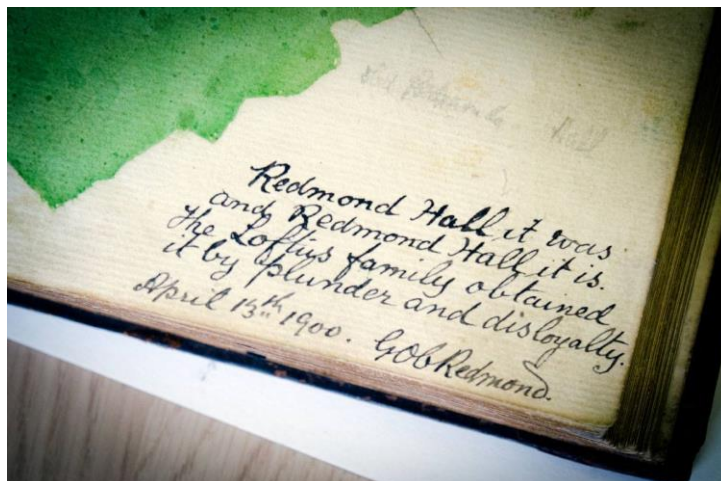 Hall
Redmond Hall it was
and Redmond Hall it is.
The Loftus family obtained
it by plunder and disloyalty.
April 13th 1900. GOBRedmond.